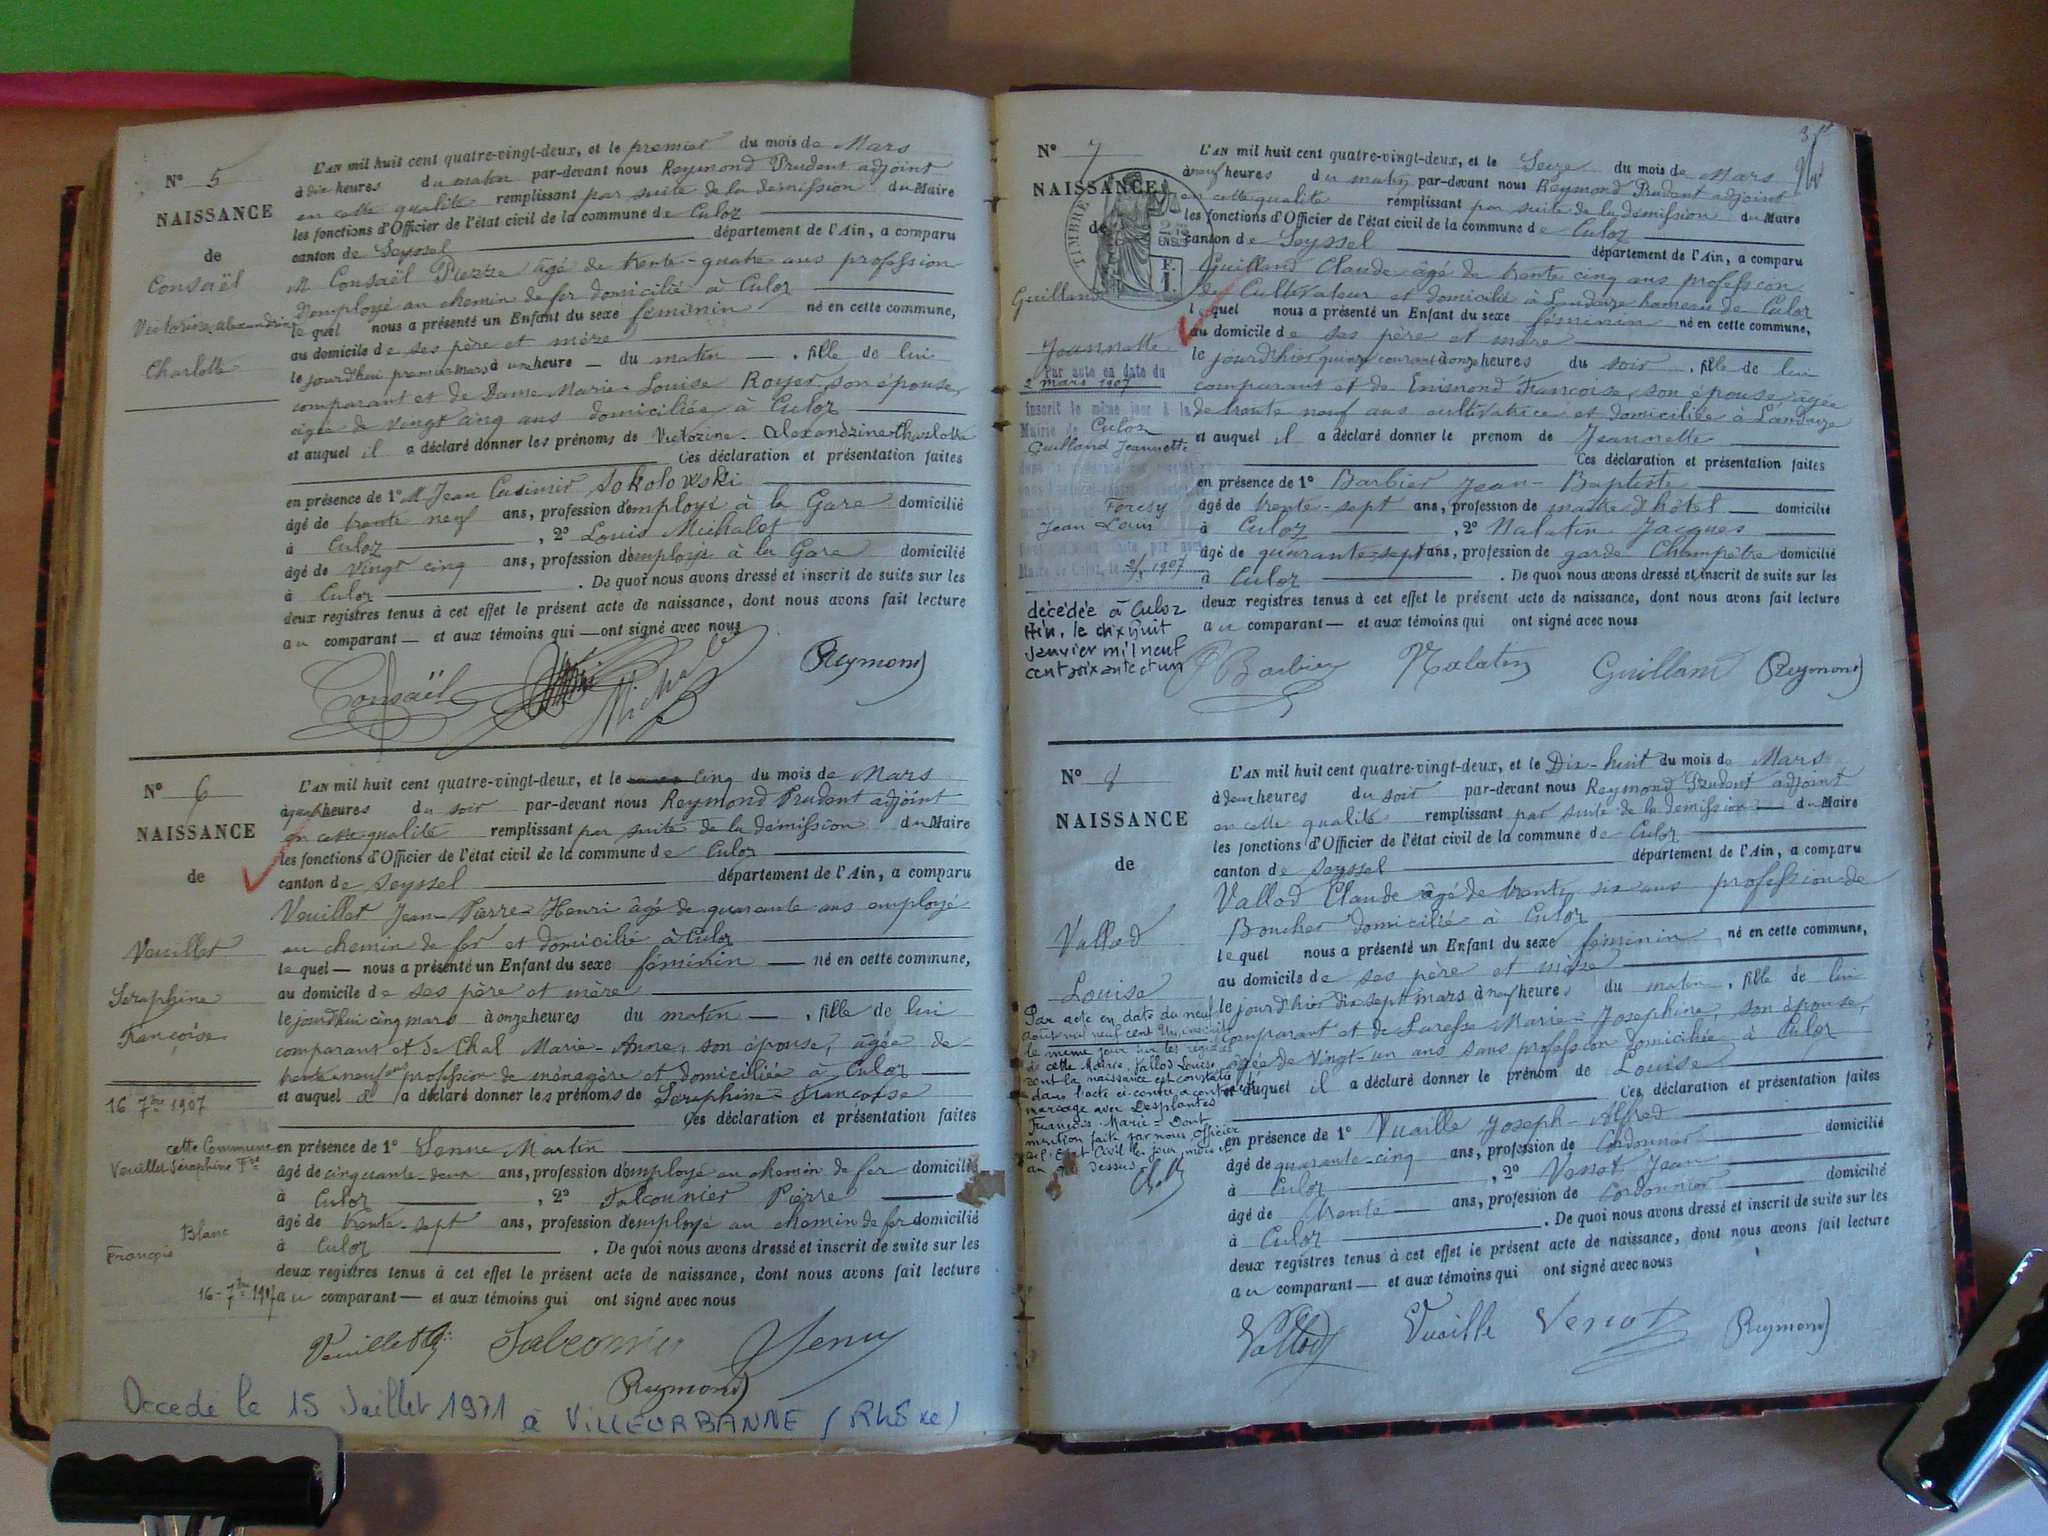 N° 5
NAISSANCE
de
Consaël
Victorine Alexandrine
Charlotte
L'AN mil huit cent quatre-vingt-deux, et le premier du mois de Mars
à dix heures du matin par-devant nous Reymond Prudent adjoint
en cette qualité remplissant par suite de la démission du Maire
les fonctions d'Officier de l'état civil de la commune de Culoz
canton de Seyssel département de l'Ain, a comparu
M Consaël Pierre âgé de trente-quatre ans profession
d'employé au chemin de fer domicilié à Culoz
lequel nous a présenté un Enfant du sexe féminin né en cette commune,
au domicile de ses père et mère
le jourd'hui premier mars à une heure du matin, fille de lui
comparant et de Dame Marie-Louise Royer, son épouse,
âgée de vingt cinq ans domiciliée à Culoz
et auquel il a déclaré donner les prénoms de Victorine Alexandrine Charlotte
Ces déclaration et présentation faites
en présence de 1° M Jean Casimir Sokolowski
âgé de trente neuf ans, profession d'employé à la Gare domicilié
à Culoz, 2° Louis Michalet
âgé de vingt cinq ans, profession d'employé à la Gare domicilié
à Culoz. De quoi nous avons dressé et inscrit de suite sur les
deux registres tenus à cet effet le présent acte de naissance, dont nous avons fait lecture
au comparant — et aux témoins qui — ont signé avec nous
Consaël Reymond
N° 6
NAISSANCE
de
Veuillet
Seraphine
Françoise
16 7bre 1907
cette Commune
Veuillet Seraphine Fse
Blanc
François
16-7bre 1907
L'AN mil huit cent quatre-vingt-deux, et le cinq du mois de Mars
heures du soir par-devant nous Reymond Prudent adjoint
en cette qualité remplissant par suite de la démission du Maire
les fonctions d'Officier de l'état civil de la commune de Culoz
canton de Seyssel département de l'Ain, a comparu
Veuillet Jean-Pierre-Henri âgé de quarante ans employé
au chemin de fer et domicilié à Culoz
lequel — nous a présenté un Enfant du sexe féminin — né en cette commune,
au domicile de ses père et mère
le jourd'hui cinq mars à onze heures du matin —, fille de lui
comparant et de Chal Marie-Anne, son épouse, âgée de
trente neuf ans profession de ménagère et domiciliée à Culoz
et auquel il a déclaré donner les prénoms de Seraphine-Françoise
Ces déclaration et présentation faites
en présence de 1° Martin
âgé de cinquante deux ans, profession d'employé au chemin de fer domicilié
à Culoz, 2° Falconnier Pierre
âgé de trente-sept ans, profession d'employé au chemin de fer domicilié
à Culoz. De quoi nous avons dressé et inscrit de suite sur les
deux registres tenus à cet effet le présent acte de naissance, dont nous avons fait lecture
au comparant — et aux témoins qui ont signé avec nous
Reymond
Decedé le 15 Juillet 1971 à VILLEURBANNE (Rhône)
N° 7
NAISSANCE
de
TIMBRE
Guilland
Jeannette
Par acte en date du
2 mars 1907
inscrit le même jour à la
Mairie de Culoz
Guilland Jeannette
Jean Louis
1907
décédée à Culoz
Ain, le dix huit
janvier mil neuf
cent soixante et un
L'AN mil huit cent quatre-vingt-deux, et le Seize du mois de Mars
à neuf heures du matin par-devant nous Reymond Prudent adjoint
en cette qualité remplissant par suite de la démission du Maire
les fonctions d'Officier de l'état civil de la commune de Culoz
canton de Seyssel département de l'Ain, a comparu
Guilland Claude âgé de trente cinq ans profession
de Cultivateur et domicilié à Landaize hameau de Culoz
lequel nous a présenté un Enfant du sexe féminin né en cette commune,
au domicile de ses père et mère
le jourd'hier quinze courant à onze heures du soir, fille de lui
comparant et de Françoise, son épouse âgée
de trente neuf ans cultivatrice et domiciliée à Landaize
et auquel il a déclaré donner le prénom de Jeannette
Ces déclaration et présentation faites
en présence de 1° Barbier Jean-Baptiste
âgé de trente-sept ans, profession de maître d'hôtel — domicilié
à Culoz, 2° Nalatin Jacques
âgé de quarante-sept ans, profession de garde Champêtre domicilié
à Culoz. De quoi nous avons dressé et inscrit de suite sur les
deux registres tenus à cet effet le présent acte de naissance, dont nous avons fait lecture
au comparant — et aux témoins qui ont signé avec nous
Barbier Nalatin Guilland Reymond
N° 8
NAISSANCE
de
Vallod
Louise
Par acte en date du neuf
août mil neuf cent un, inscrit
le même jour sur les registres
de cette Mairie, Vallod Louise
dont la naissance est constatée
dans l'acte ci-contre, a contracté
mariage avec Desplantes
François-Marie = Dont
mention faite par nous Officier
de l'Etat Civil les jour, mois et
an que dessus
L'AN mil huit cent quatre-vingt-deux, et le Dix-huit du mois de Mars
à deux heures du soir par-devant nous Reymond Prudent adjoint
en cette qualité remplissant par suite de la démission du Maire
les fonctions d'Officier de l'état civil de la commune de Culoz
canton de Seyssel département de l'Ain, a comparu
Vallod Claude âgé de trente six ans profession de
Boucher domicilié à Culoz
lequel nous a présenté un Enfant du sexe féminin né en cette commune,
au domicile de ses père et mère
le jourd'hier dix sept mars à neuf heures du matin, fille de lui
comparant et de Marie-Josephine, son épouse,
âgée de vingt-un ans sans profession domiciliée à Culoz
et auquel il a déclaré donner le prénom de Louise
Ces déclaration et présentation faites
en présence de 1° Vuaille Joseph-Alfred
âgé de quarante-cinq ans, profession de Cordonnier domicilié
à Culoz, 2° Venot Jean
âgé de trente — ans, profession de Cordonnier domicilié
à Culoz. De quoi nous avons dressé et inscrit de suite sur les
deux registres tenus à cet effet le présent acte de naissance, dont nous avons fait lecture
au comparant — et aux témoins qui ont signé avec nous
Vallod Vuaille Venot Reymond